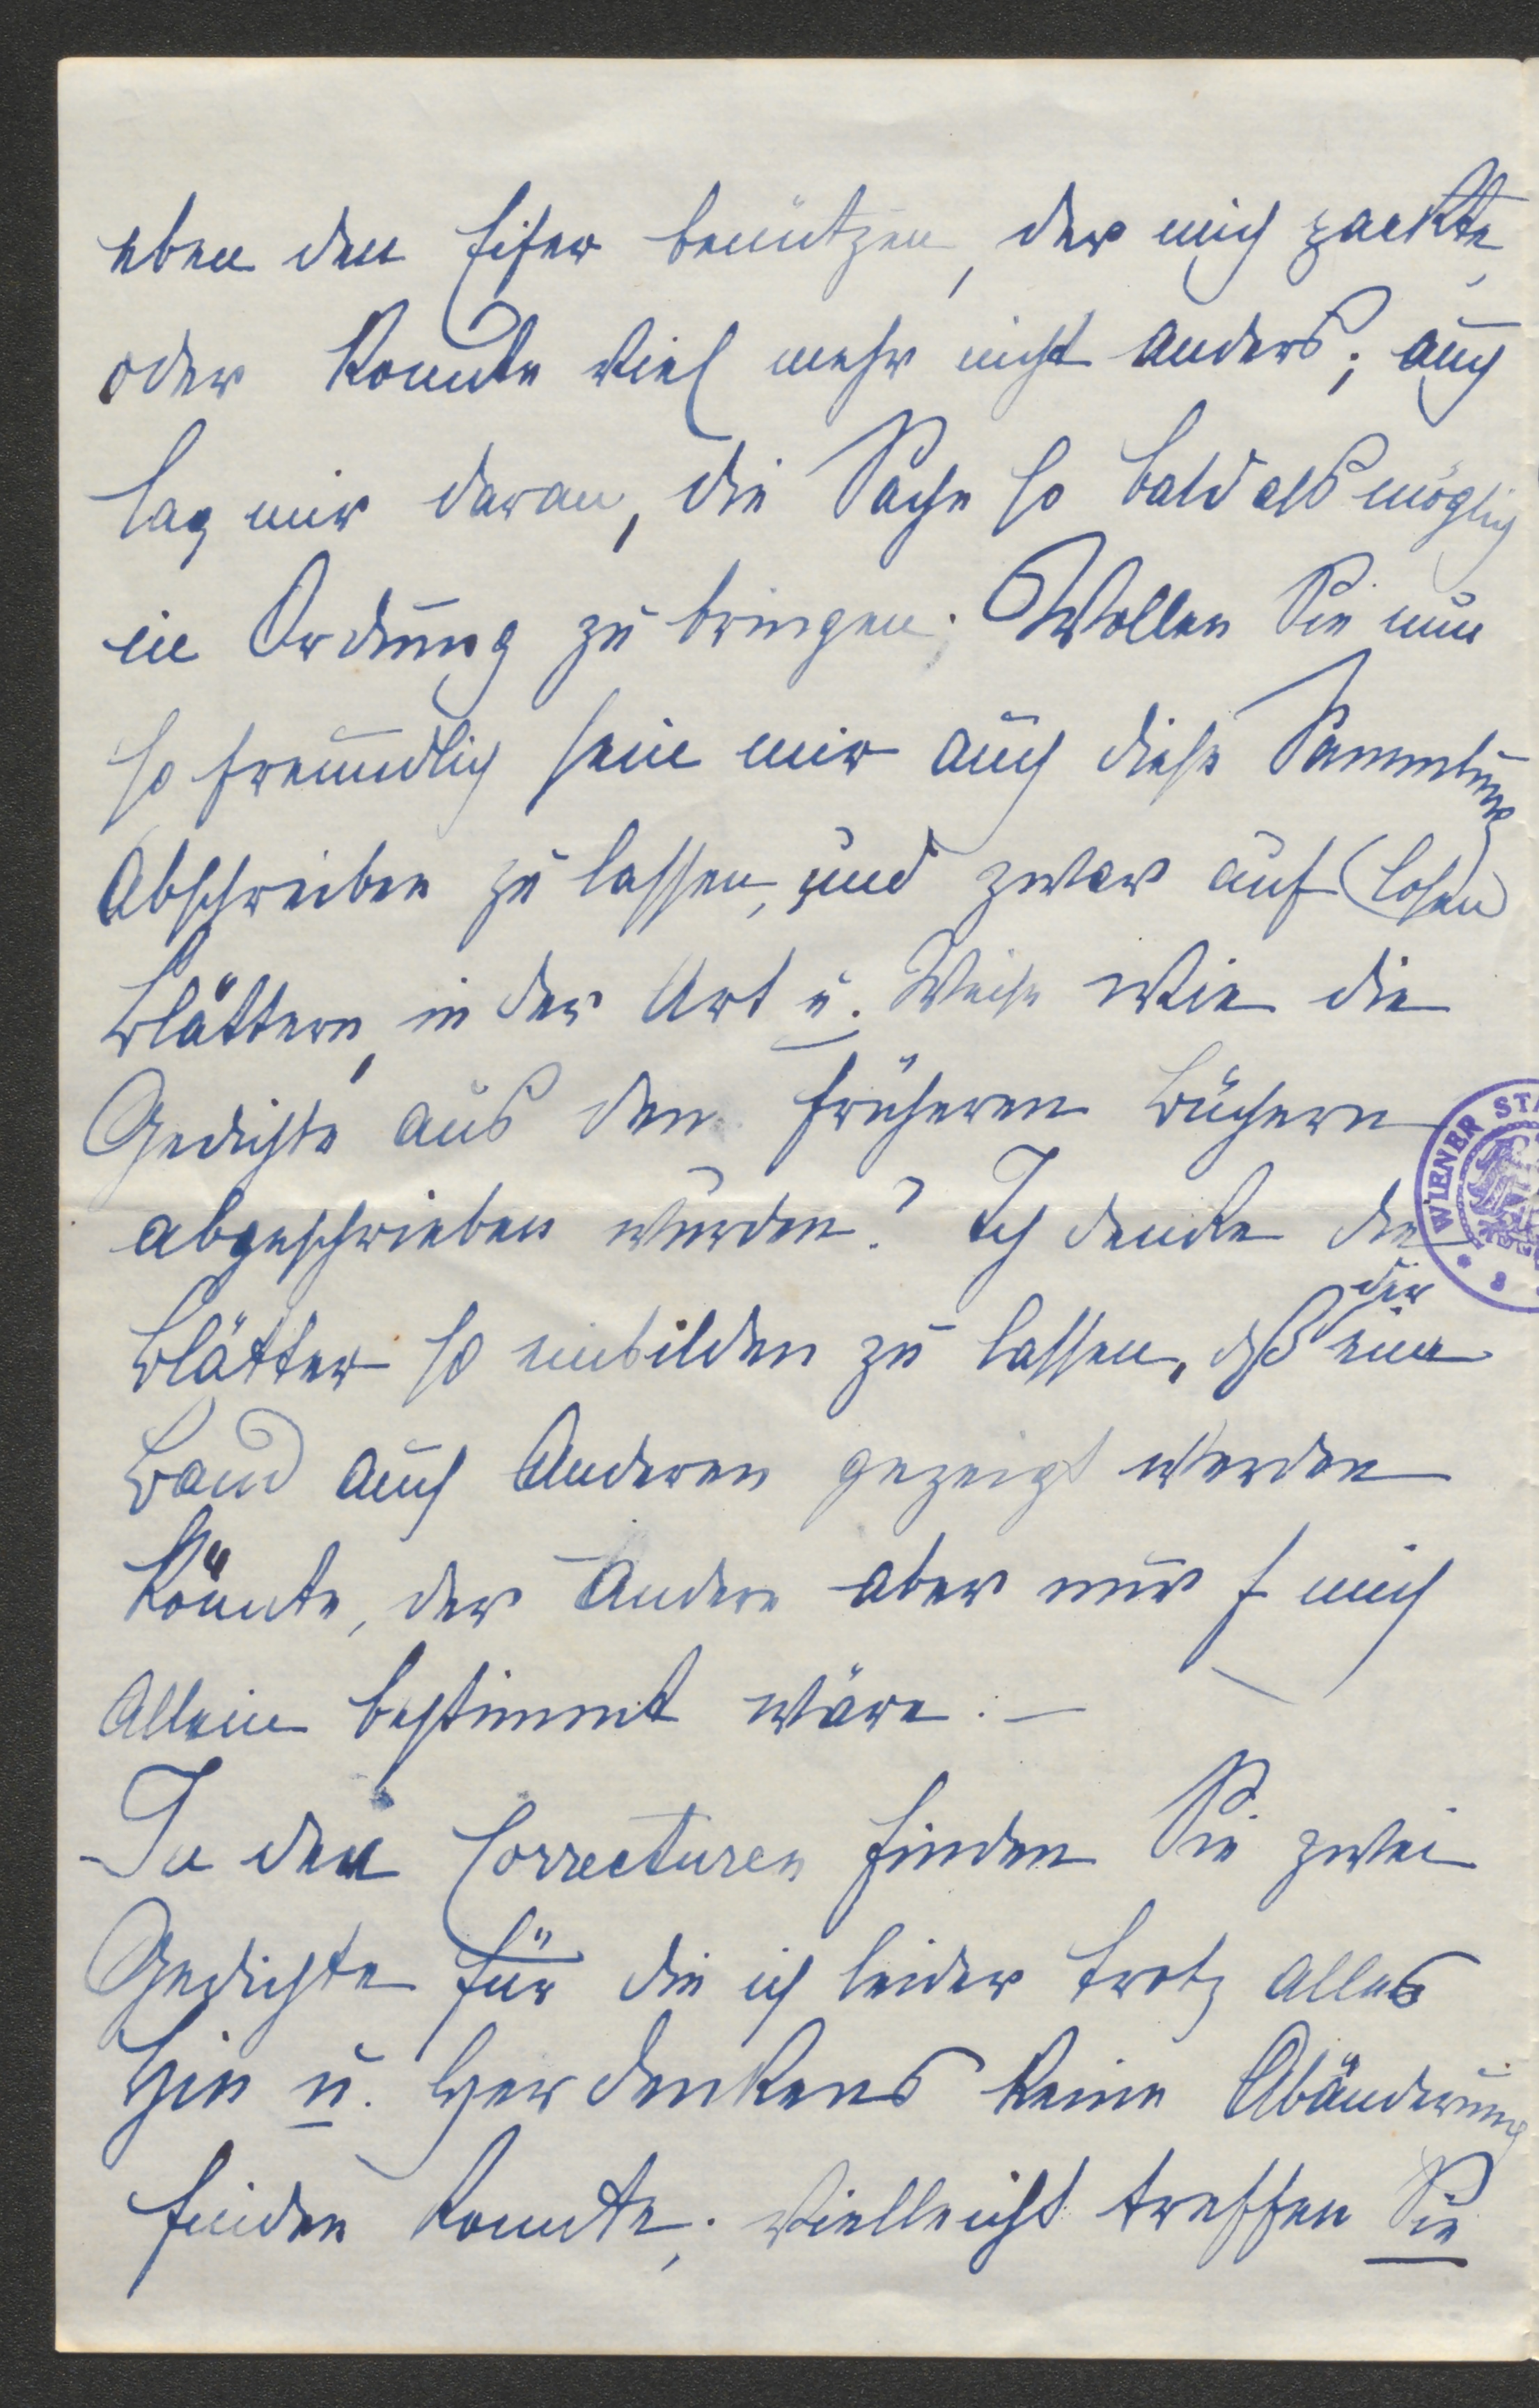 eben den Eifer benützen, der mich packte,
oder konnte viel mehr nicht anders; auch
lag mir daran, die Sache so bald als möglich
in Ordnung zu bringen. Wollen Sie nun
so freundlich sein mir auch diese Sammlung
abschreiben zu lassen, und zwar auf losen
Blättern, in der Art u. Weise wie die
Gedichte aus den früheren Büchern
abgeschrieben wurden? Ich denke die
der
Blätter so einbilden zu lassen, dß eine
Band auch Anderen gezeigt werden
könnte, der Andere aber nur f mich
allein bestimmt wäre. —
In den Correcturen finden Sie zwei
Gedichte für die ich leider trotz alles
Hin u. Her denkens keine Abänderung
finden konnte; vielleicht treffen Sie
WIENER ST